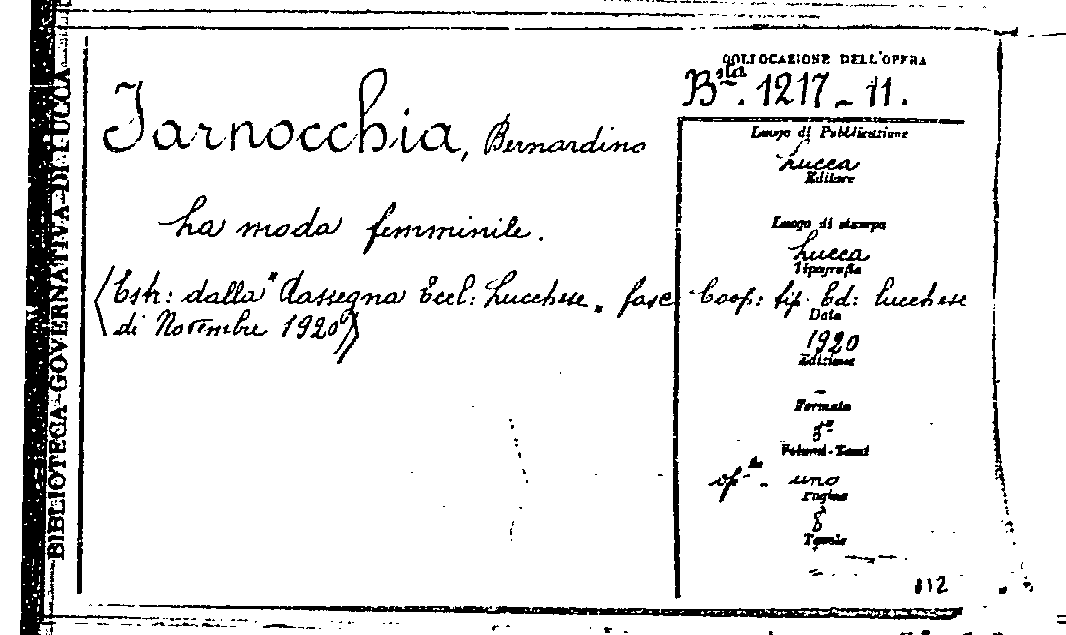 BIBLIOTECA GOVERNATIVA DI LUCCA
COLLOCAZIONE DELL'OPERA
Bsta. 1217 - 11.
Tarnocchia, Bernardino
La moda femminile.
(Estr: dalla "Rassegna Eccl: Lucchese" fasc
di Novembre 1920)
Luogo di Pubblicazione
Lucca
Editore
Luogo di stampa
Lucca
Tipografia
Coop: tip. Ed: lucchese
Data
1920
Edizione
–
Formato
8°
Volumi-Tomi
uno
Pagine
8
Tavole
112